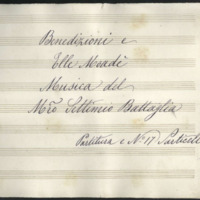 Benedizioni e
Elle Mvadi
Musica del
Mro Settimio Battaglia
Partitura e No 17 Particelle